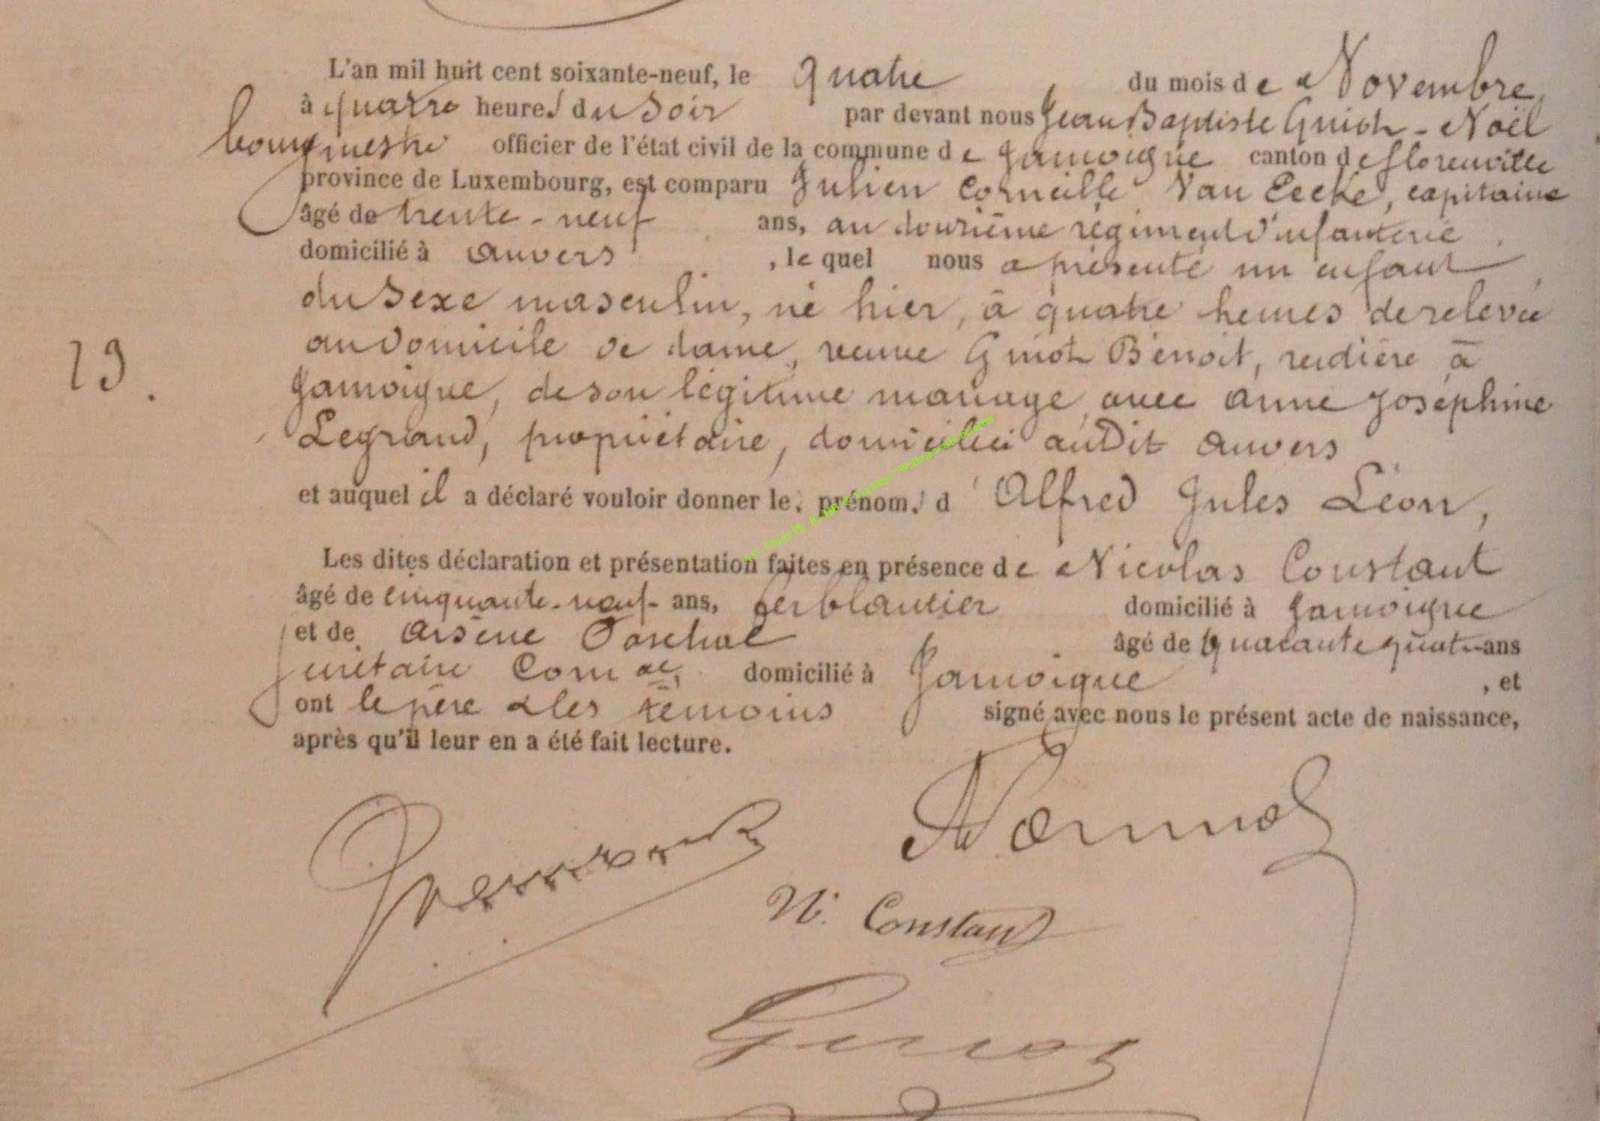 L'an mil huit cent soixante-neuf, le quatre du mois de Novembre
à quatre heures du Soir par devant nous Jean Baptiste Guiot-Noël
bourgmestre officier de l'état civil de la commune de Jamoigne canton de florenville
province de Luxembourg, est comparu Julien Corneille Van Eecke, capitaine
âgé de trente-neuf ans, au douzième régiment d'infanterie
domicilié à Anvers, le quel nous a présenté un enfant
du Sexe masculin, né hier, à quatre heures de relevée
au domicile de dame, veuve Guiot Benoit, rentière à
Jamoigne, de son légitime mariage avec Anne Joséphine
Legrand, propriétaire, domiciliée audit Anvers
et auquel il a déclaré vouloir donner les prénoms d'Alfred Jules Léon,
Les dites déclaration et présentation faites en présence de Nicolas Constant
âgé de cinquante-neuf ans, ferblantier domicilié à Jamoigne
19.
et de Arsène Paschal âgé de quarante quatre ans
secrétaire Comal, domicilié à Jamoigne, et
ont le père & les témoins signé avec nous le présent acte de naissance,
après qu'il leur en a été fait lecture.
N. Constant
Guiot